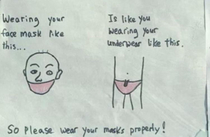 Wearing your
face mask like
this...
Is like you
wearing your
underwear like this.
So please wear your masks properly!